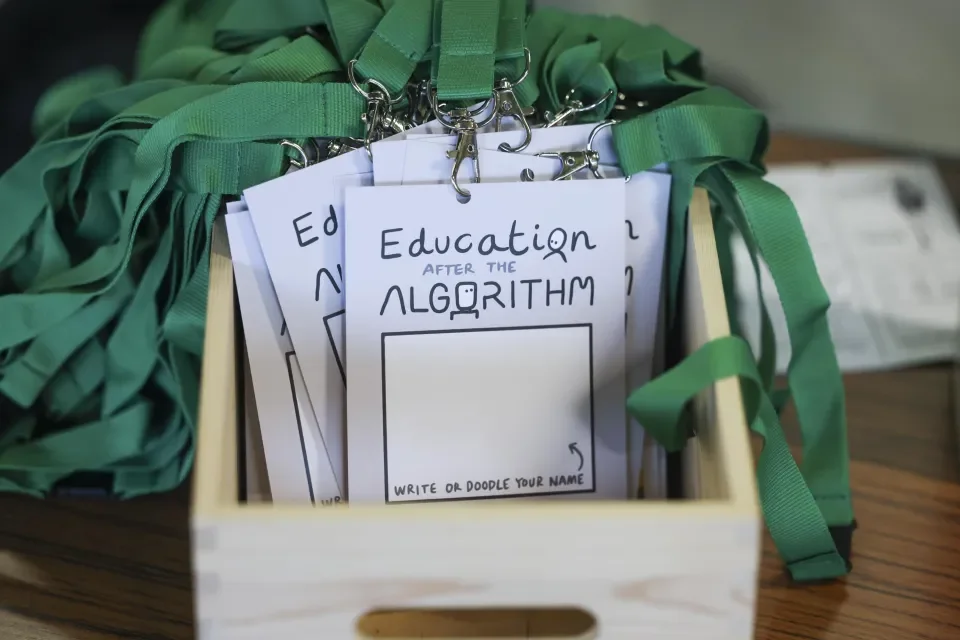 Education
AFTER THE
ALGORITHM
WRITE OR DOODLE YOUR NAME
Ed